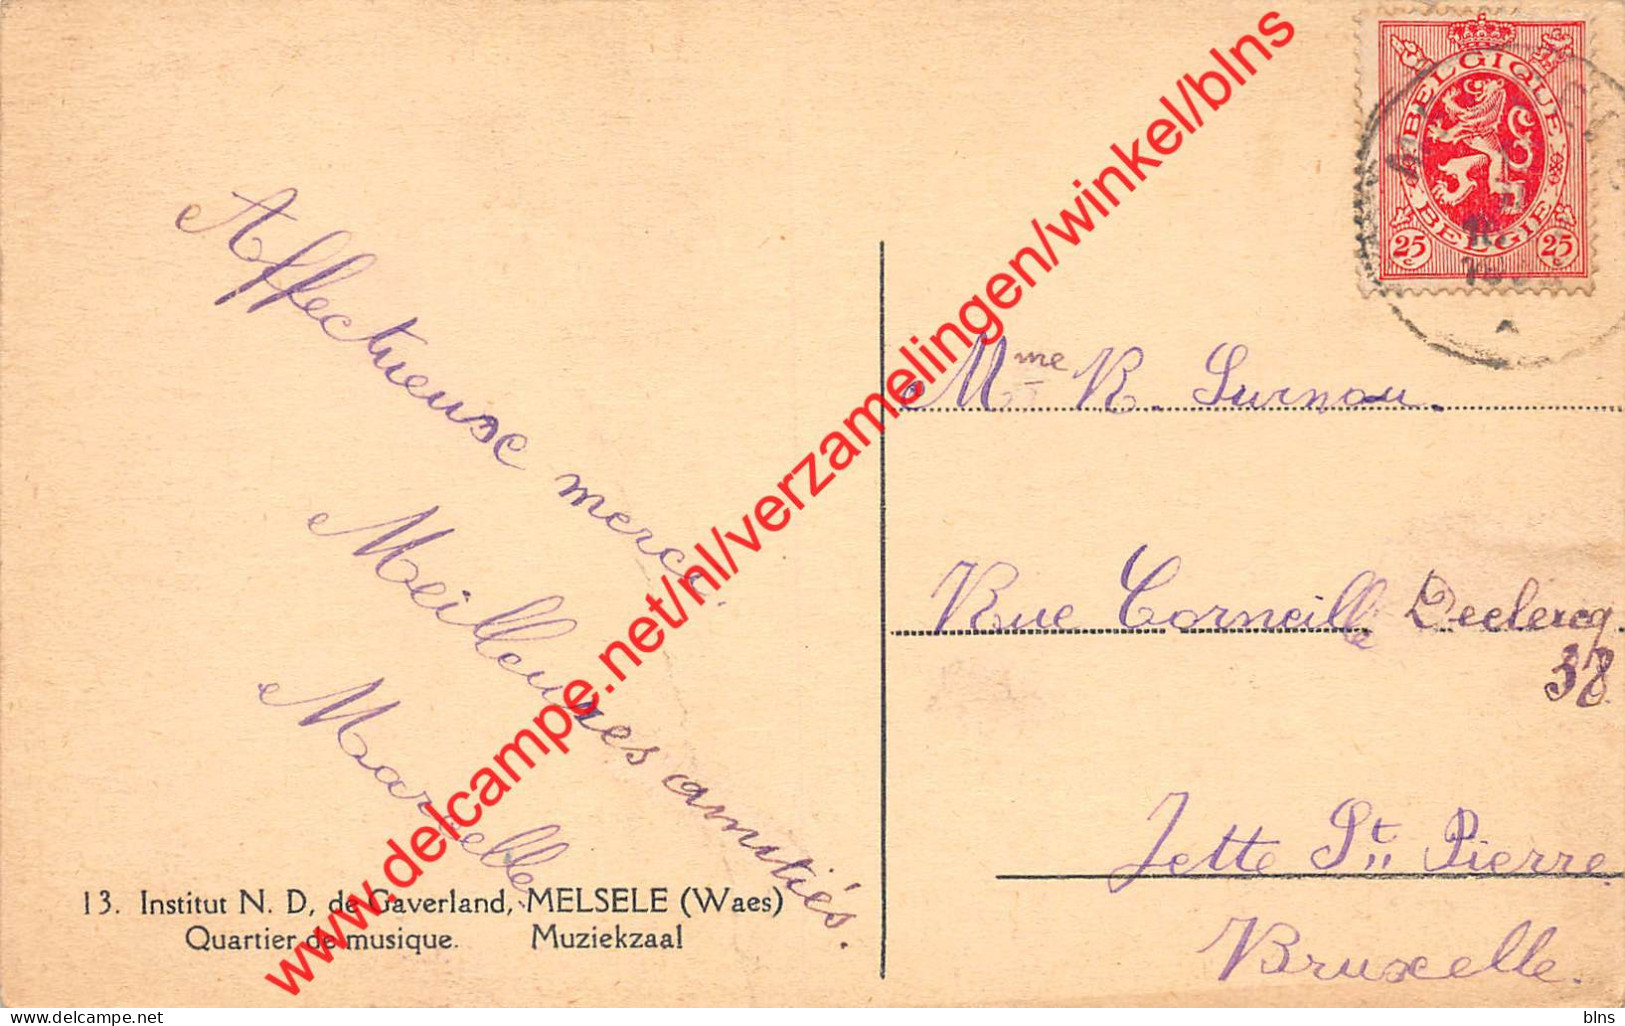 BELGIQUE
BELGIE
25 25
Affectueuse merci.
Meilleures amitiés.
Marcelle
13. Institut N. D. de Gaverland, MELSELE (Waes)
Quartier de musique. Muziekzaal
Mme R. Surnou.
Rue Corneille Declercq.
38
Jette St. Pierre
Bruxelle.
www.delcampe.net/nl/verzamelingen/winkel/blns
delcampe.net
blns